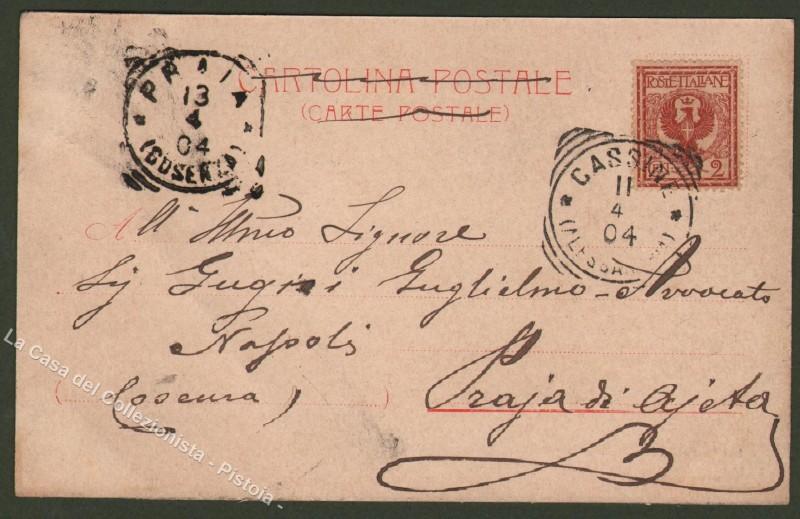 CARTOLINA POSTALE
(CARTE POSTALE)
PRAIA
13
4
04
(COSENZA)
POSTE ITALIANE
2
CASSINE
11
4
04
(ALESSANDRIA)
All' Signore
Guglielmo - Avvocato
Napoli
(Cosenza) Praja di Ajeta
La Casa del Collezionista - Pistoia -